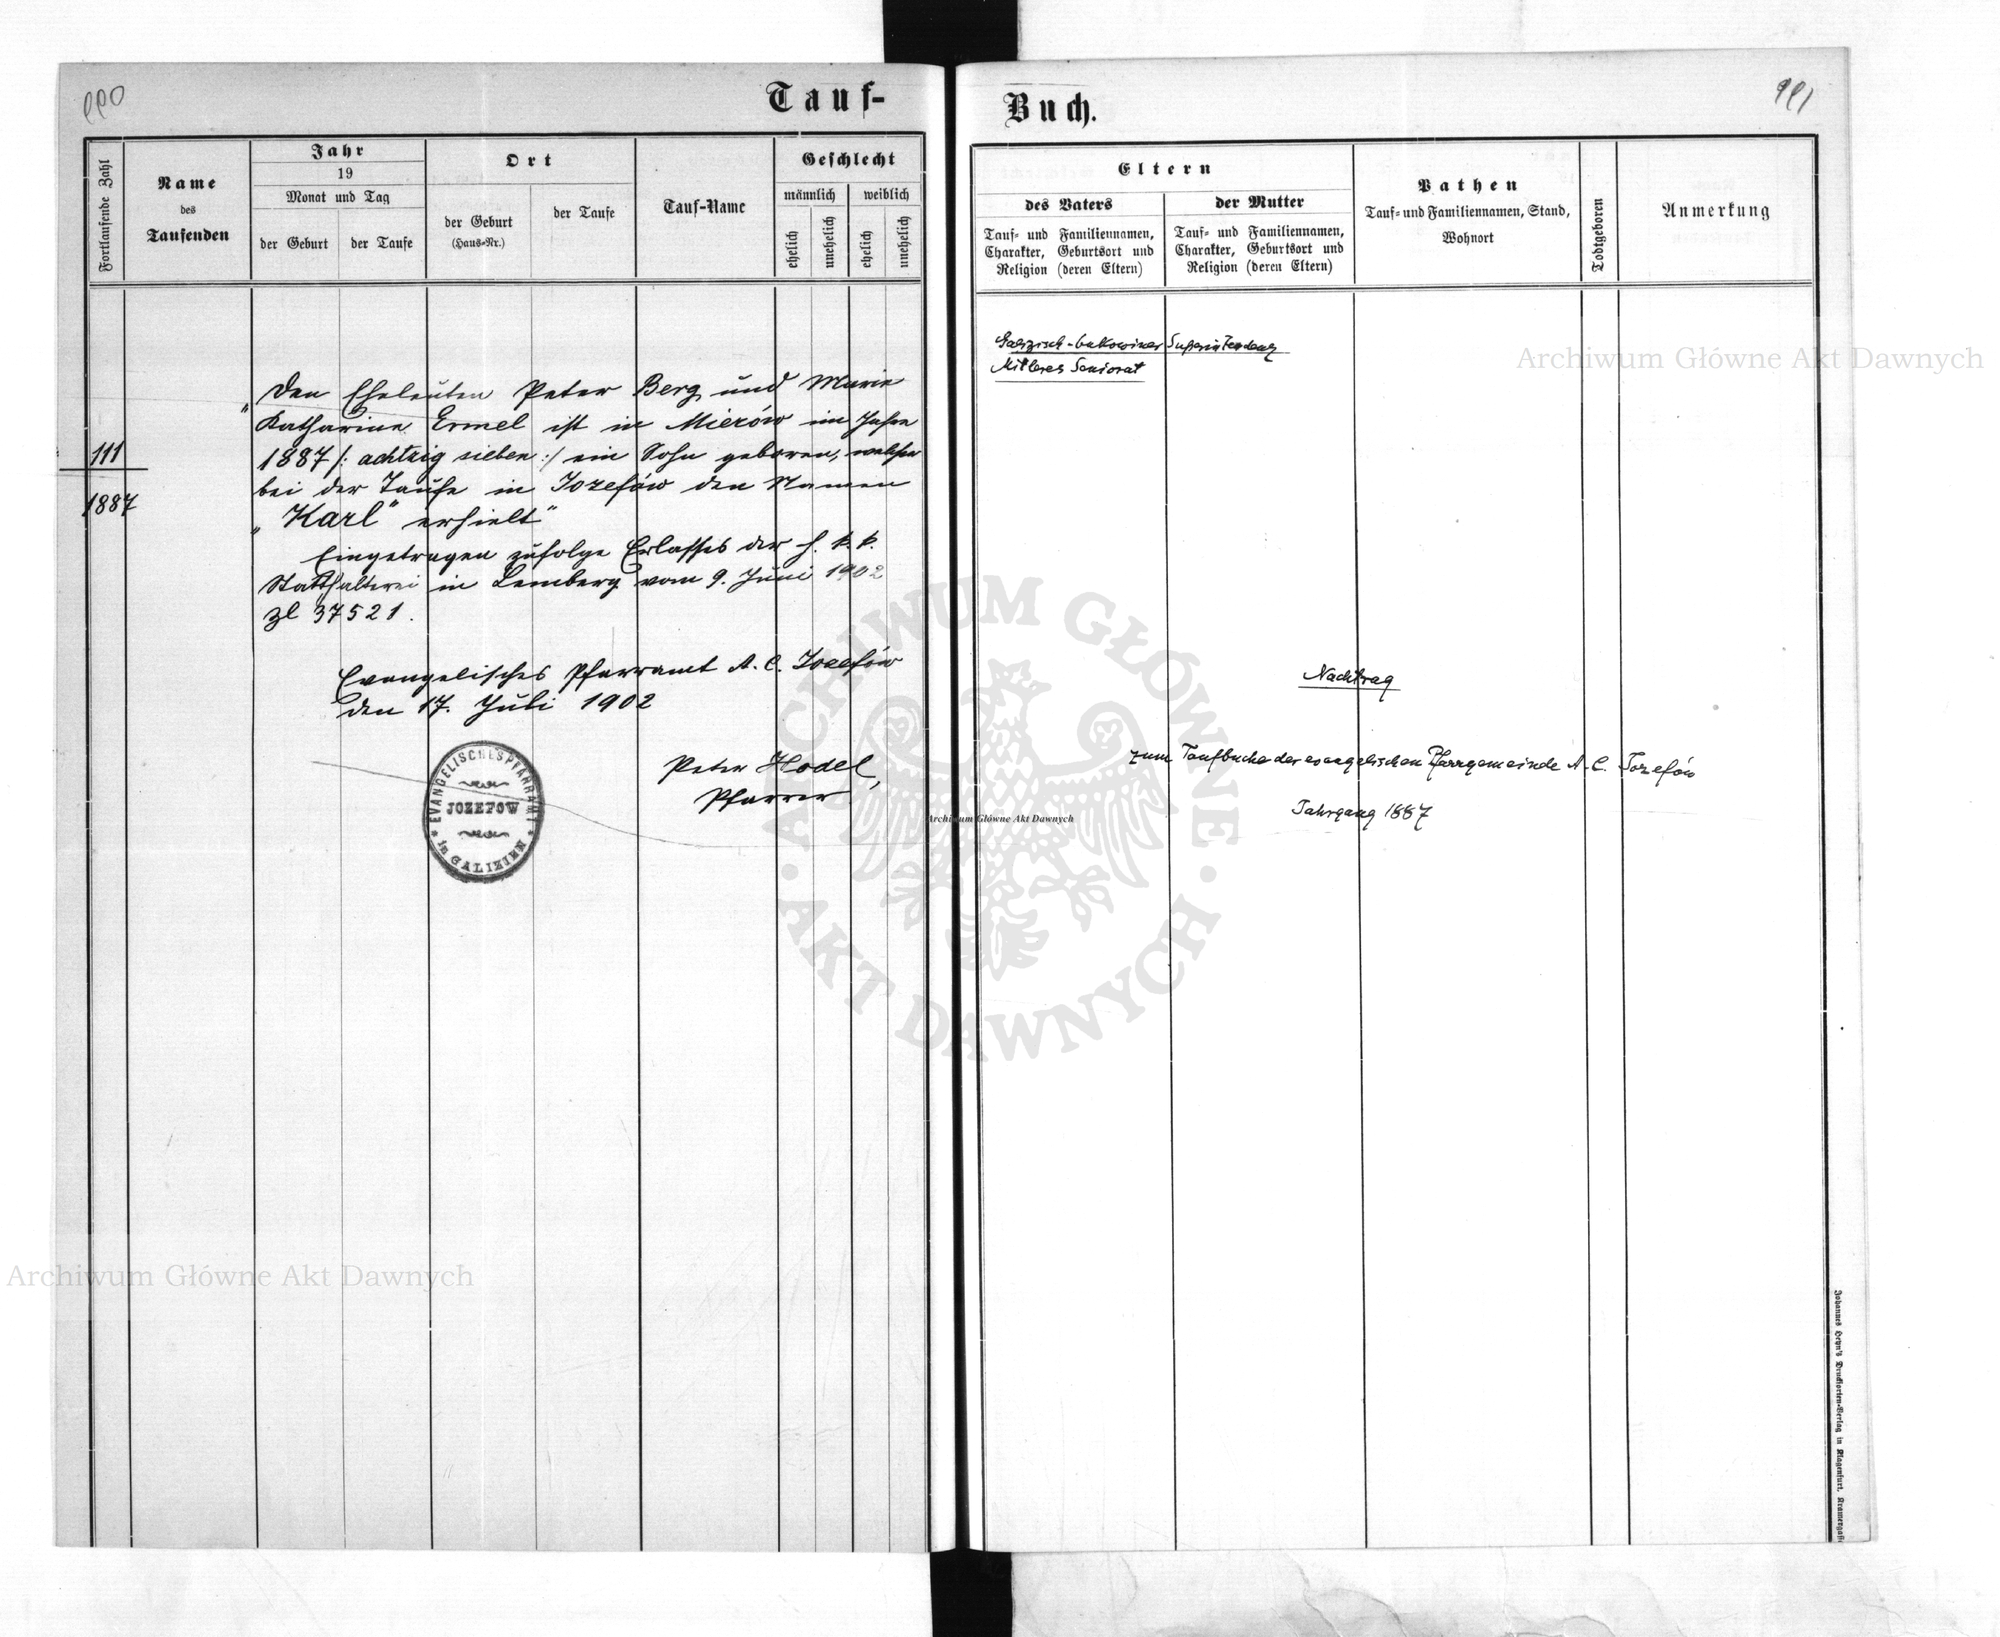 Tauf-
Fortlaufende Zahl
Name
des
Taufenden
Jahr
19
Monat und Tag
der Geburt
der Taufe
Ort
der Geburt
(Haus-Nr.)
der Taufe
Tauf-Name
Geschlecht
männlich
weiblich
ehelich
unehelich
ehelich
unehelich
111
1887
„Den Eheleuten Peter Berg und Marie
Katharine Ermel ist in Mierów im Jahre
1887 /: achtzig sieben :/ ein Sohn geboren, welcher
bei der Taufe in Jozefów den Namen
„Karl“ erhielt“
Eingetragen zufolge Erlasses der h. k. k.
Statthalterei in Lemberg vom 9. Juni 1902
Zl 37521.
Evangelisches Pfarramt A. C. Jozefów
den 17. Juli 1902
Peter Hodel,
Pfarrer
EVANGELISCHES PFARRAMT
JOZEFOW
in GALIZIEN
Archiwum Główne Akt Dawnych
Buch.
991
Eltern
des Vaters
Tauf- und Familiennamen,
Charakter, Geburtsort und
Religion (deren Eltern)
der Mutter
Tauf- und Familiennamen,
Charakter, Geburtsort und
Religion (deren Eltern)
Pathen
Tauf- und Familiennamen, Stand,
Wohnort
Todtgeboren
Anmerkung
Galizisch-bukowiner Superintendenz
Mittleres Seniorat
Archiwum Główne Akt Dawnych
Nachtrag
zum Taufbuche der evangelischen Pfarrgemeinde A. C. Jozefów
Jahrgang 1887
Archiwum Główne Akt Dawnych
ARCHIWUM GŁÓWNE
AKT DAWNYCH
Johannes Heyn's Drucksorten-Verlag in Klagenfurt,